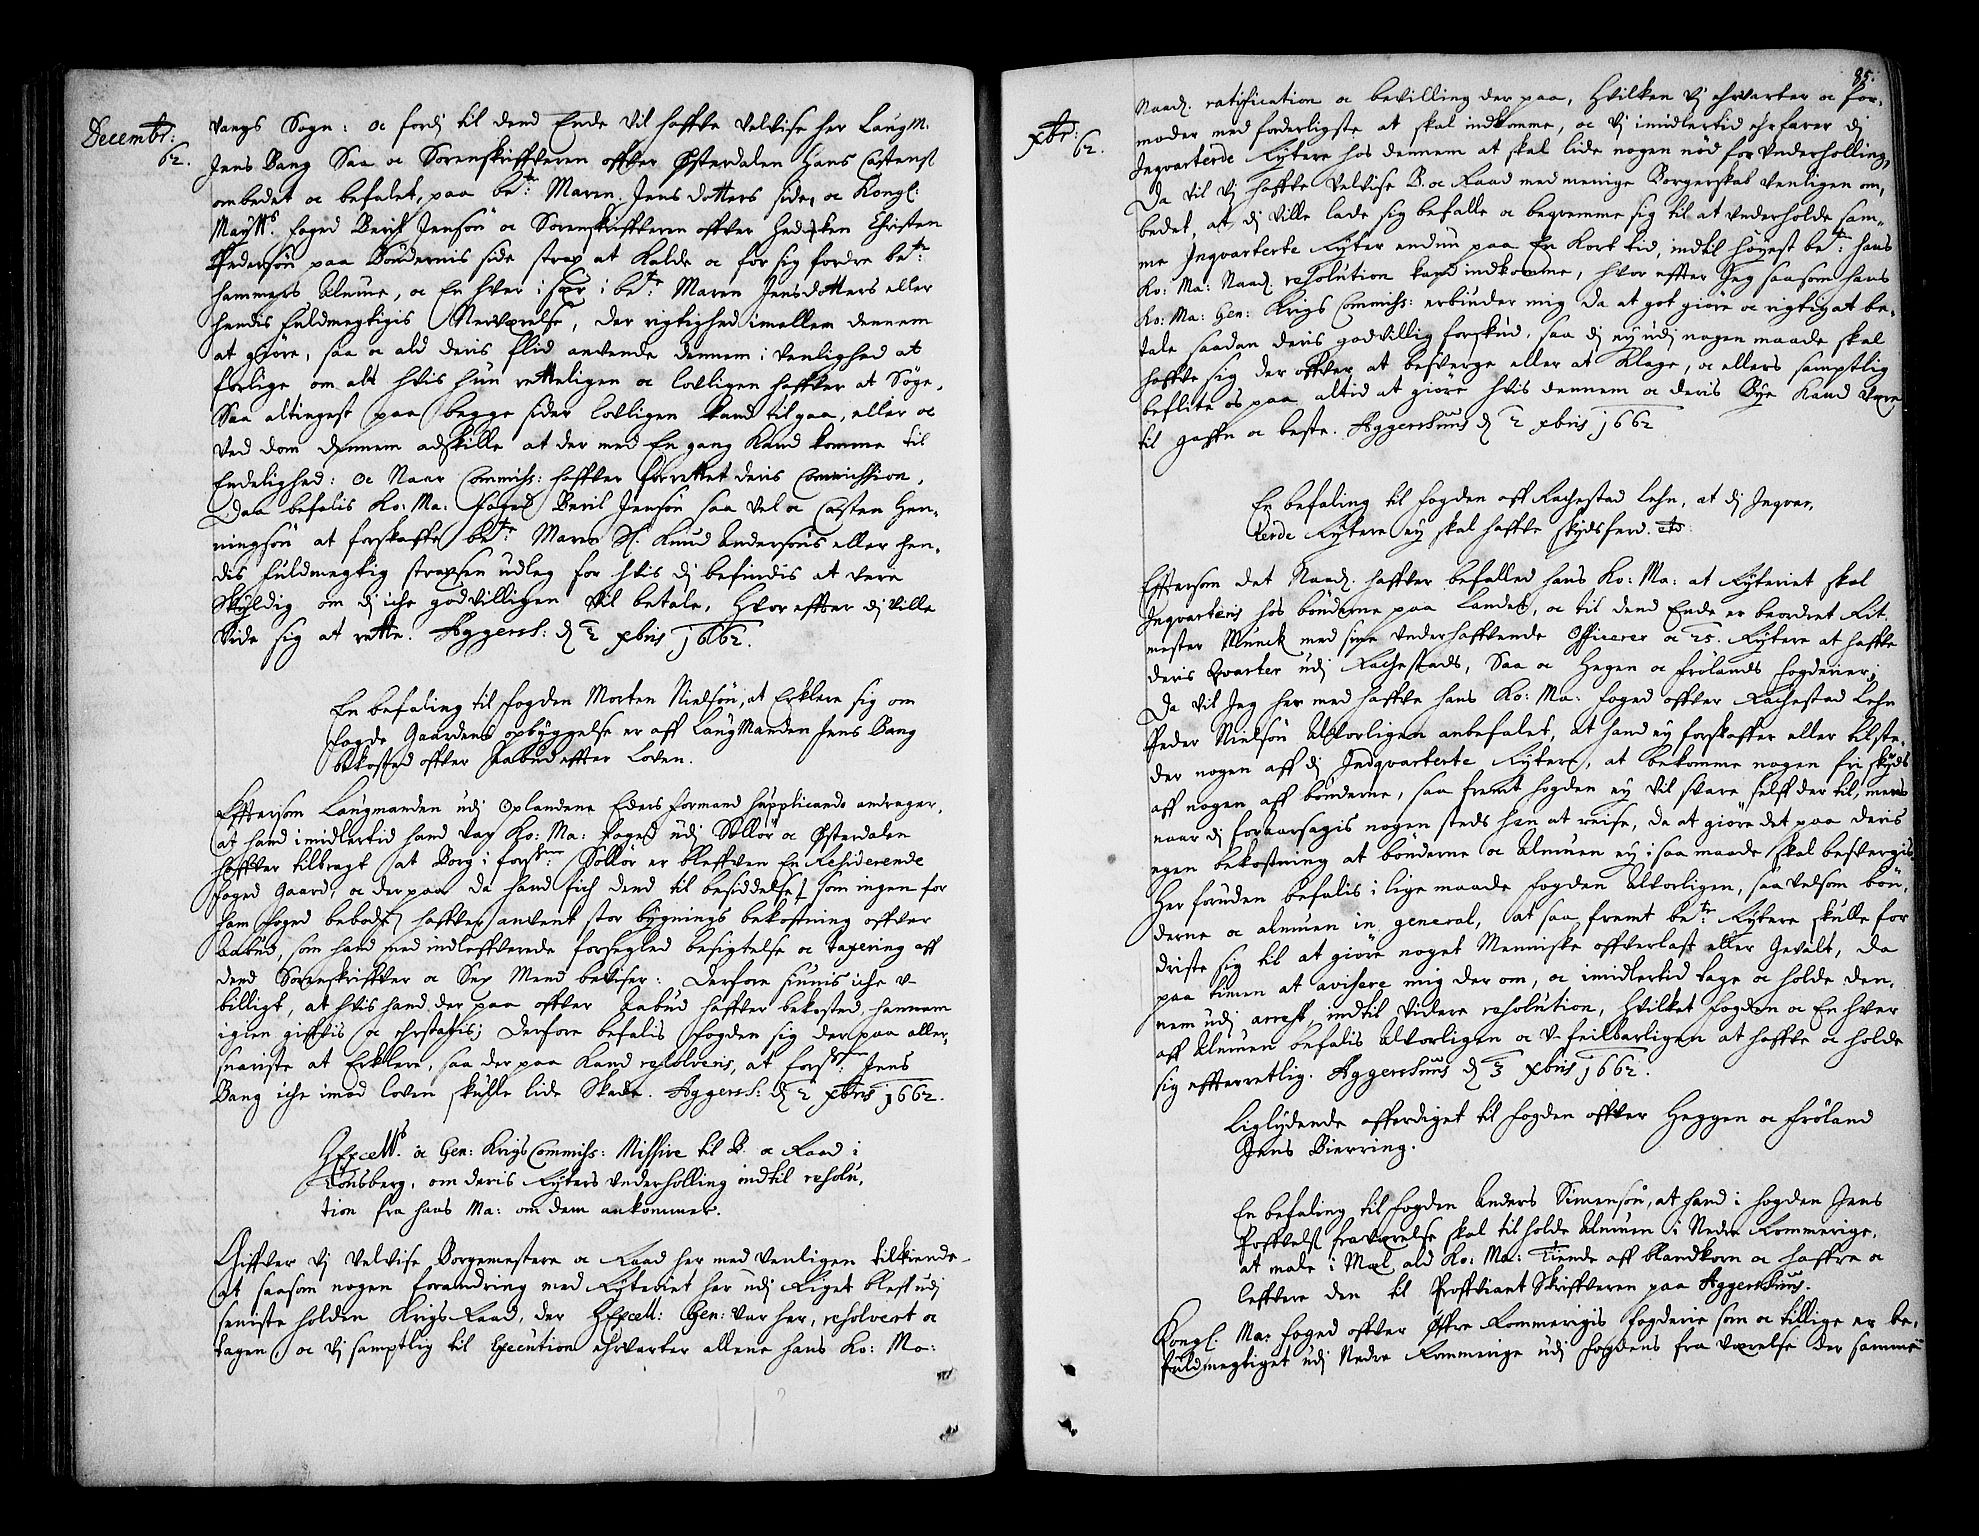 Decembr:
62.
vangs Sogn: oc fordj til dend Ende vil haffve velvise her Laugm:
Jens Bang Saa oc Sorenskriffveren offver Østerdalen Hans Castens
ombedet oc befalet, paa be:te Maren Jens dotters side, oc Kongl:
Maytts. foged Bericl Jensön oc Sorenskriffveren offver Hedmken Christen
Pedersön paa Böndernis side strax at kalde oc for sig fordre be:te
hammers Almue, oc En hver i sær i be:te Maren Jensdotters eller
hendis fuldmegtigis Nerværelse, der rigtighed imellem dennem
at giöre, saa oc ald deris flid anvende dennem i venlighed at
forlige om alt hvis hun retteligen oc lovligen haffver at Söge,
Saa altingest paa begge sider lovligen kand tilgaa, eller oc
ved dom dennem adskille at der med En gang kand komme til
Endelighed: oc Naar Commiss: haffver forrettet deris Commission,
Daa befalis Ko: Ma: foged Bericl Jensön saa vel oc Casten Hen-
ningsön at forskaffe be:te Maren Sl. Knud Andersöns eller hen-
dis fuldmegtig straxsen udleg for hvis dj befindis at vere
skyldig om dj iche godvilligen vil betale, Hvoreffter dj ville
vide sig at rette. Aggersh: d 2 xbris 1662.
En befaling til fogden Morten Nielsön, at Erklere sig om
fogde Gaardens opbyggelse er aff Laugmanden Jens Bang
bekosted offver Aabud effter Loven.
Efftersom Laugmanden udj Oplandene Eders formand supplicando andrager,
at hand imidlertid hand var Ko: Ma: foged udj Sollör oc Østerdalen
haffver tilbragt at Borg i forsne: Sollör er bleffven En Residerende
foged Gaard, oc der paa da hand fich dend til besiddelse, som ingen for
ham foged beboede haffver anvent stor bygnings bekostning offver
Aabud, som hand med indleffverede forseglede besigtelse oc taxering aff
dend Sorenskriffver oc Sex Mend beviser: Derfore siunis iche u-
billigt, at hvis hand der paa offver Aabud haffver bekosted, hannem
igien giffvis oc erstatis; Derfore befalis fogden sig der paa aller-
snariste at Erklere, saa der paa kand resolveris, at forsne: Jens
Bang iche imod loven skulle lide Skade. Aggersh: d 2 xbris 1662.
Hs Excells. oc Gen: Krigs Commiss: Missive til B. oc Raad i
Tönsberg, om deris Rytters underholling indtil resolu-
tion fra hans Ma: om dem ankommer.
Giffver vj velvise Borgemestere oc Raad her med venligen tilkiende
at saasom nogen forandring med Rytteriet her udj Riget bleff udj
seniste holden Krigs Raad, der Hs Excell: Gen: var her, resolvert oc
tagen oc vj samptlig til Execution ehrvarter allene hans Ko: Ma:
85.
xbr:
62.
Naad. ratification oc bevilling der paa, hvilken vj ehrvarter oc for-
moder med forderligste at skal indkomme, oc vj imidlertid ehrfarer dj
Inqvarterde Ryttere hos dennem at skal lide nogen nöd for underholling,
Da vil vj haffve velvise B. oc Raad med menige Borgerskab venligen om-
bedet, at dj ville lade sig befalle oc beqvemme sig til at underholde sam-
me Inqvarterte Rytter endnu paa En kort tid, indtil höyest be:te hans
Ko: Ma: Naad. resolution kand indkomme, hvor effter Jeg saasom hans
Ko: Ma: Gen: Krigs Commiss: erbiuder mig da at got giöre oc rigtig at be-
tale saadan deris godvillig forskud, saa dj ey udj nogen maade skal
haffve sig der offver at besverge eller at klage, oc ellers samptlig
beflite os paa altid at giöre hvis dennem oc deris Bye kand være
til gaffn oc beste. Aggershuus d 2 xbris 1662
En befaling til fogden aff Rachestad Lehn, at dj Inqvar-
terde Ryttere ey skal haffve skydsferd. etc:
Effterson det Naad. haffver befalled hans Ko: Ma: at Rytteriet skal
Inqvarteris hos bönderne paa Landet, oc til dend Ende er beordret Rit-
mester Munck med sine underhaffvende Officerer oc 25. Ryttere at haffve
deris qvarter udj Rachestads, Saa oc Hegen oc Frölands fogderier;
Da vil Jeg her med haffve hans Ko: Ma: foged offver Rachestad Lehn
Peder Nielsön Alvorligen anbefalet, at hand ey forskaffer eller tilste-
der nogen aff dj Indqvarterte Ryttere, at bekomme nogen fri skyds
aff nogen aff bönderne, saa fremt fogden ey vil svare self der til, mens
naar dj foraarsagis nogen steds hen at reise, da at giöre det paa deris
egen bekostning at bönderne oc Almuen ey i saa maade skal besvergis
Her foruden befalis i lige maade fogden Alvorligen, saa velsom bön-
derne oc almuen in general, at saa fremt be:te Ryttere skulle for
driste sig til at giöre noget Menniske offverlast eller Gevalt, da
paa timen at avisere mig der om, oc imidlertid tage oc holde den-
nem udj arrest, indtil videre resolution, hvilket fogden oc En hver
aff Almuen befalis Alvorligen oc u-feilbarligen at haffve oc holde
sig effterretlig. Aggershuus d 3 xbris 1662.
Liglydende afferdiget til fogden offver Heggen oc Fröland
Jens Bierring.
En befaling til fogden Anders Simensön, at hand i fogden Jens
Poffvels fraværelse skal til holde Almuen i Nedre Rommerige,
at male i Mæl ald Ko: Ma: Tiende aff blandkorn oc haffre oc
leffvere den til Proffviant Skriffveren paa Aggershuus.
Kongl: Ma: foged offver Øffre Rommerigis fogderie som oc tillige er be-
fuldmegtiget udj Nedre Rommerige udj fogdens fra værelse der samme